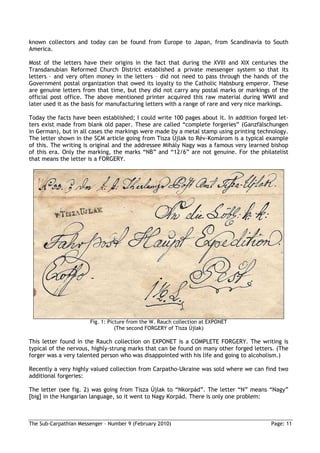 known collectors and today can be found from Europe to Japan, from Scandinavia to South
America.
Most of the letters have their origins in the fact that during the XVIII and XIX centuries the
Transdanubian Reformed Church District established a private messenger system so that its
letters – and very often money in the letters – did not need to pass through the hands of the
Government postal organization that owed its loyalty to the Catholic Habsburg emperor. These
are genuine letters from that time, but they did not carry any postal marks or markings of the
official post office. The above mentioned printer acquired this raw material during WWII and
later used it as the basis for manufacturing letters with a range of rare and very nice markings.
Today the facts have been established; I could write 100 pages about it. In addition forged let-
ters exist made from blank old paper. These are called “complete forgeries” (Ganzfälschungen
in German), but in all cases the markings were made by a metal stamp using printing technology.
The letter shown in the SCM article going from Tisza Ujlak to Rév-Komárom is a typical example
of this. The writing is original and the addressee Mihály Nagy was a famous very learned bishop
of this era. Only the marking, the marks “NB” and “12/6” are not genuine. For the philatelist
that means the letter is a FORGERY.
TISZAUJLAK
An die Löbl: k: k:
Fahrpost Haupt Expedition.
Exoffo.
Pesth.
Fig. 1: Picture from the W. Rauch collection at EXPONET
(The second FORGERY of Tisza Újlak)
This letter found in the Rauch collection on EXPONET is a COMPLETE FORGERY. The writing is
typical of the nervous, highly-strung marks that can be found on many other forged letters. (The
forger was a very talented person who was disappointed with his life and going to alcoholism.)
Recently a very highly valued collection from Carpatho-Ukraine was sold where we can find two
additional forgeries:
The letter (see fig. 2) was going from Tisza Újlak to “Nkorpád”. The letter “N” means “Nagy”
[big] in the Hungarian language, so it went to Nagy Korpád. There is only one problem:
The Sub-Carpathian Messenger – Number 9 (February 2010)
Page: 11